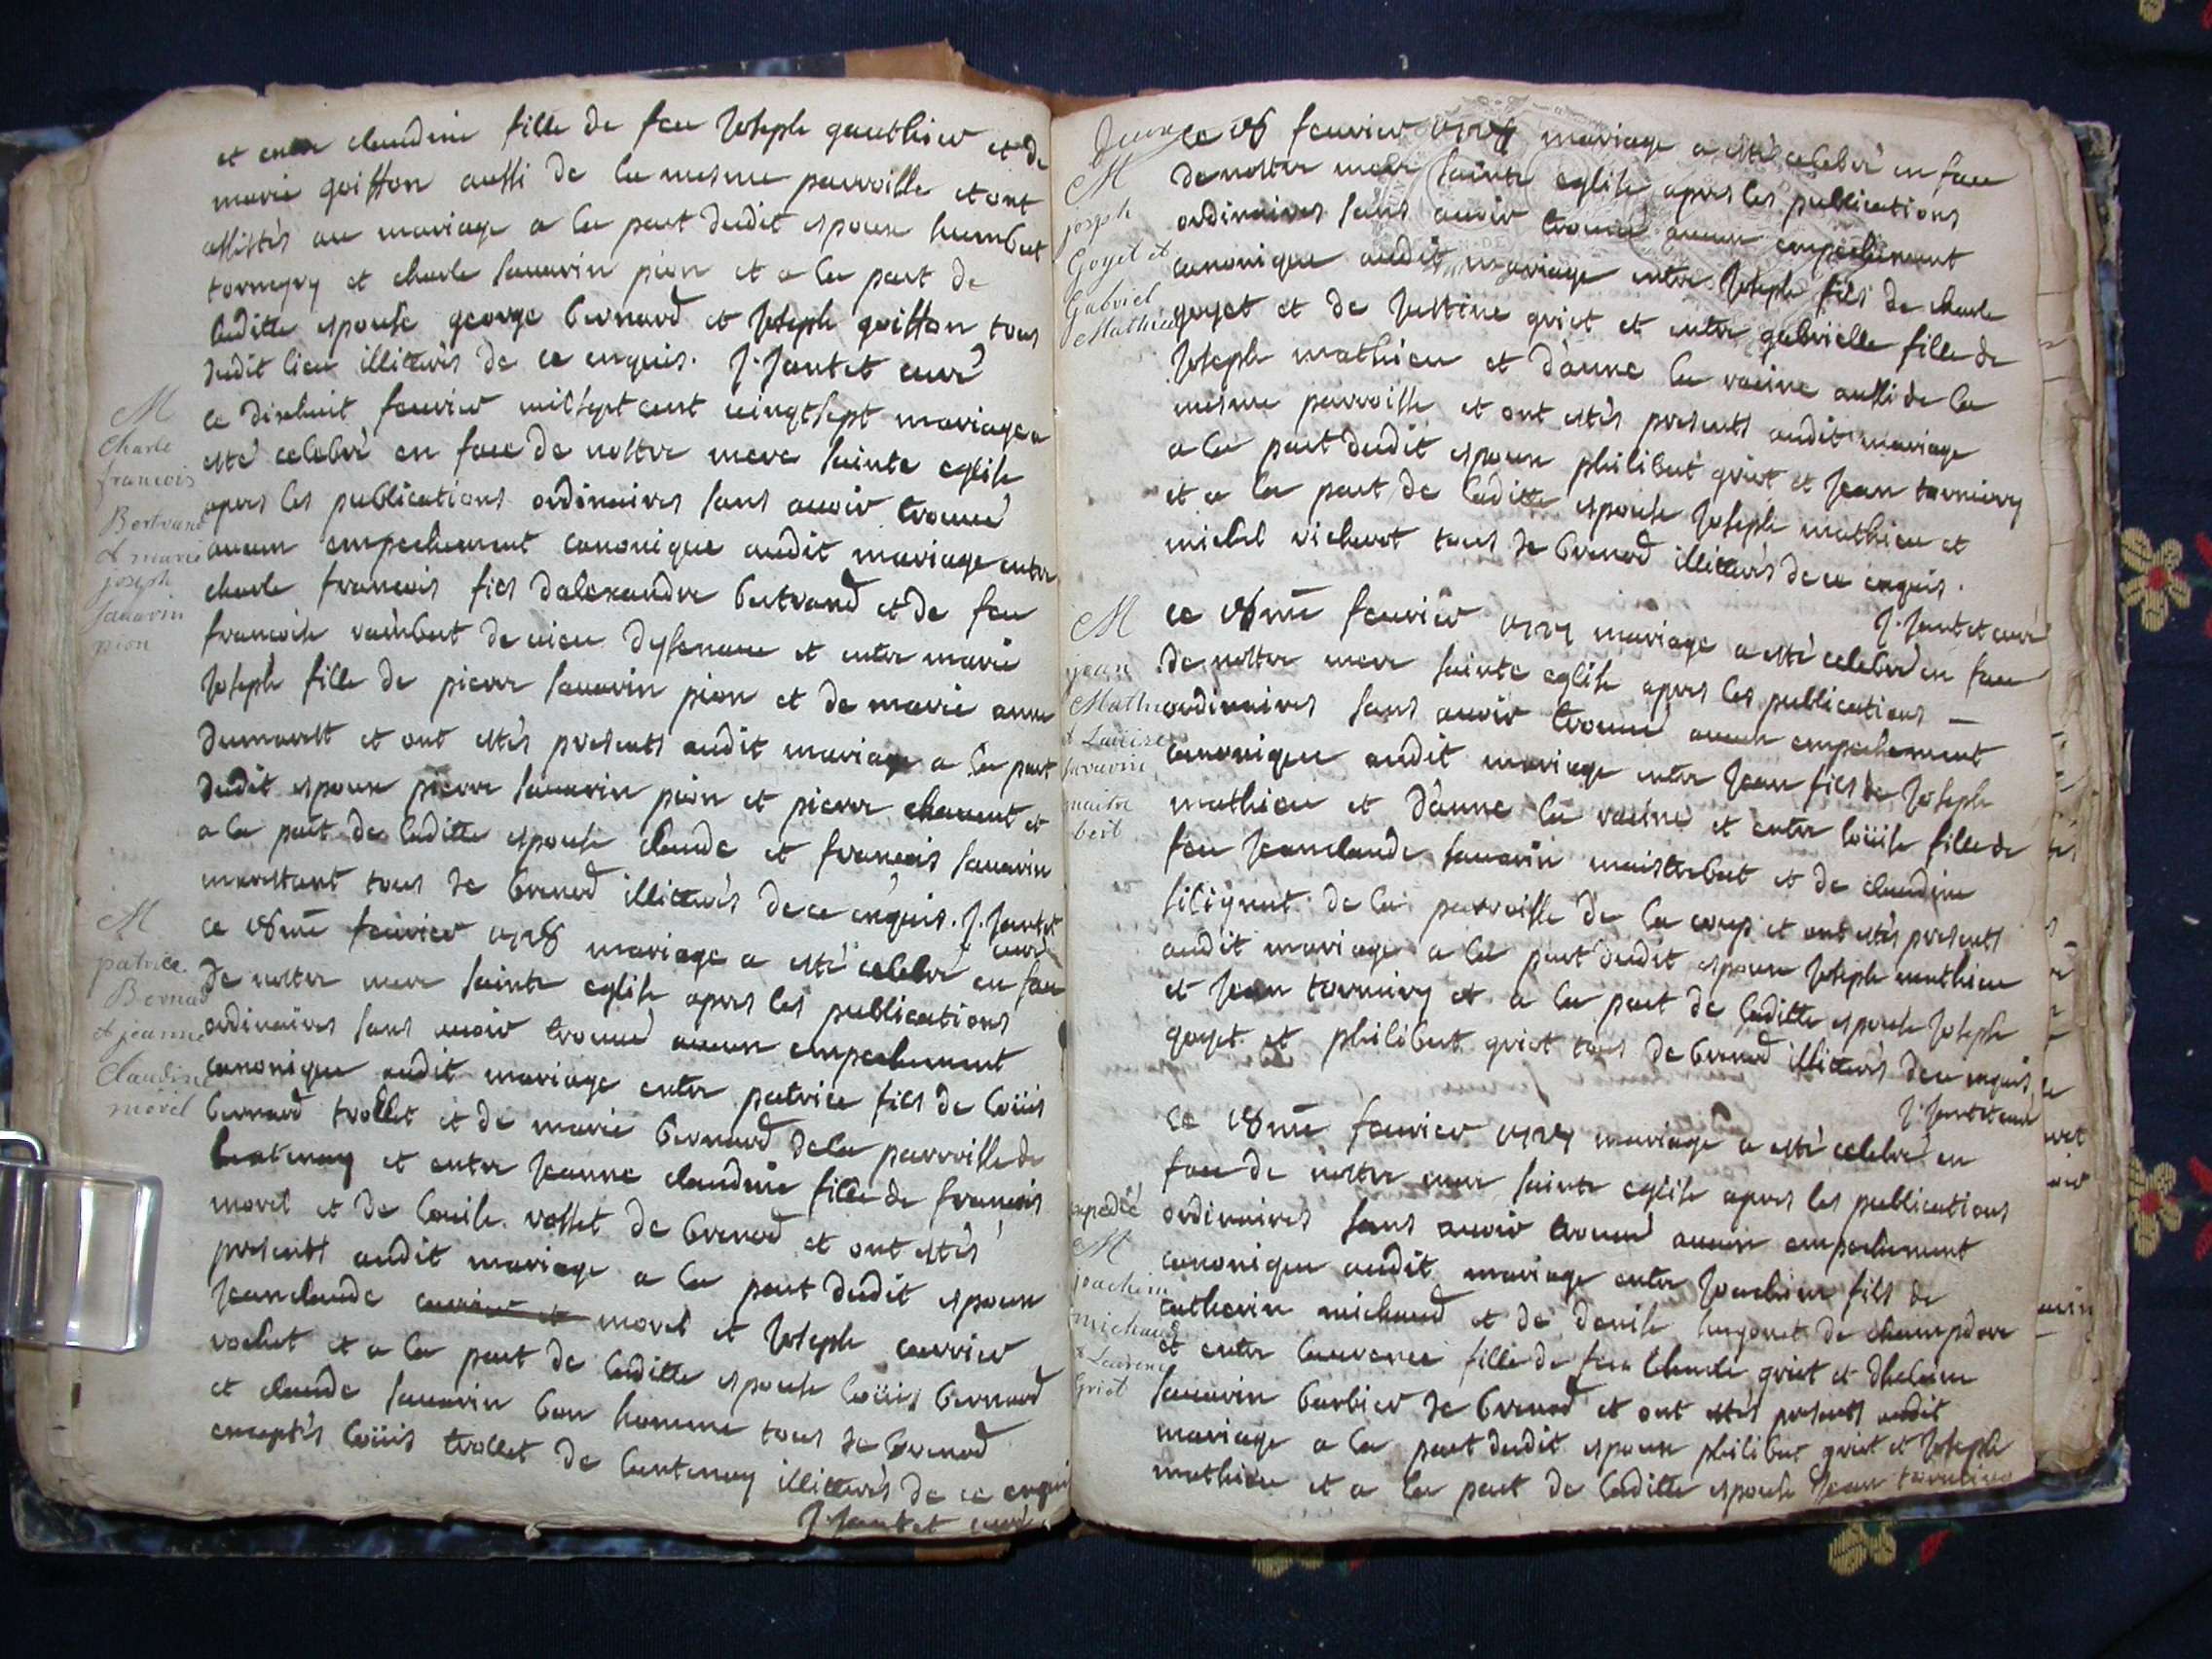 et entre claudine fille de feu Joseph gauthier et de
marie goiffon aussi de la mesme parroisse et ont
assistés au mariage a la part dudit espoux humbert
torniery et charle sauarin pion et a la part de
laditte espouse george bernard et Joseph goiffon tous
dudit lieu illitterés de ce enquis. J. Jantet curé
M
Charle
francois
Bertrand
et marie
joseph
sauarin
pion
ce dixhuit feurier mil sept cent uingt sept mariage a
esté celebré en face de nostre mere sainte eglise
apres les publications ordinaires sans auoir trouué
aucun empechement canonique audit mariage entre
charle francois fils dalexandre bertrand et de feu
francoise raimbert de uieu dysenaue et entre marie
Joseph fille de pierre sauarin pion et de marie anne
dumarest et ont estés presents audit mariage a la part
dudit espoux pierre sauarin pion et pierre chauent et
a la part de laditte espouse claude et francois sauarin
marettant tous de brenod illitterés de ce enquis. J. Jantet
curé
M
patrice
Bernard
et jeanne
Claudine
morel
ce 18me feurier mariage a esté celebré en face
de nostre mere sainte eglise apres les publications
ordinaires sans auoir trouué aucun empechement
canonique audit mariage entre patrice fils de loüis
bernard trollet et de marie bernard de la parroisse de
lantenay et entre Jeanne claudine fille de francois
morel et de louise rosset de brenod et ont estés
presents audit mariage a la part dudit espoux
Jeanclaude carrier et morel et Joseph carrier
rochet et a la part de laditte espouse loüis bernard
et claude sauarin bon homme tous de brenod
exceptés loüis trollet de lantenay illitterés de ce enquis
J. Jantet curé
M
joseph
Goyet et
Gabriel
Mathieu
ce 18 feurier mariage a esté celebré en face
de nostre mere sainte eglise apres les publications
ordinaires sans auoir trouué aucun empechement
canonique audit mariage entre Joseph fils de charle
goyet et de Justine griot et entre gabrielle fille de
Joseph mathieu et d'anne la racine aussi de la
mesme parroisse et ont estés presents audit mariage
a la part dudit espoux philibert griot et Jean torniery
et a la part de laditte espouse Joseph mathieu et
michel richerot tous de brenod illitterés de ce enquis.
J. Jantet curé
M
jean
Mathieu
et Laüise
savarin
maitre
bert
ce 18me feurier mariage a esté celebré en face
de nostre mere sainte eglise apres les publications —
ordinaires sans auoir trouué aucun empechement
canonique audit mariage entre Jean fils de Joseph
mathieu et d'anne la racine et entre loüise fille de
feu Jeanclaude sauarin maistrebert et de claudine
silignat de la parroisse de la coup et ont estés presents
audit mariage a la part dudit espoux Joseph mathieu
et Jean torniery et a la part de laditte espouse Joseph
goyet et philibert griot tous de brenod illitterés de ce enquis
J. Jantet curé
expedié
M
joachim
michaud
et Laurence
Griot
ce 18me feurier mariage a esté celebré en
face de nostre mere sainte eglise apres les publications
ordinaires sans auoir trouué aucun empechement
canonique audit mariage entre Joachim fils de
catherin michaud et de denise hugonet de champdore
et entre laurence fille de feu claude griot et dhelaine
sauarin barbier de brenod et ont estés presents audit
mariage a la part dudit espoux philibert griot et Joseph
mathieu et a la part de laditte espouse Jean torniery